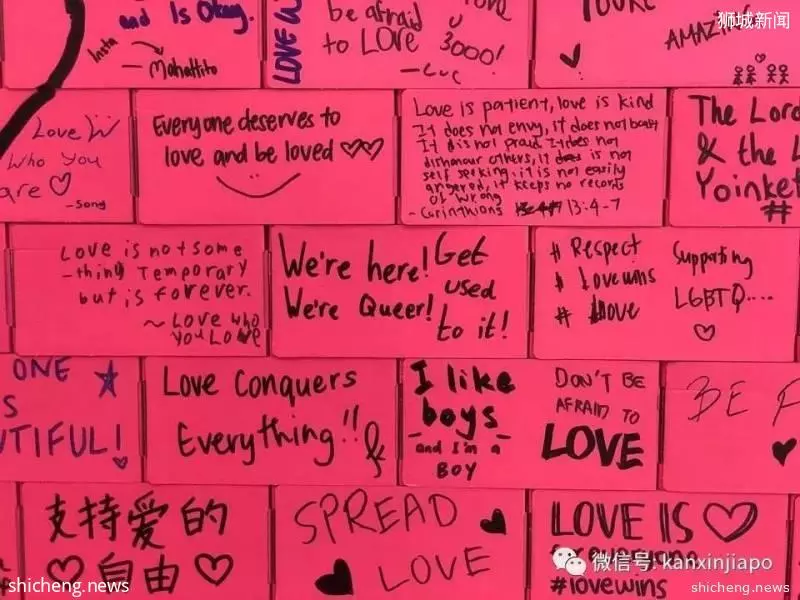 and Is Okay.
Insta
Mahattito
LOVE
be afraid
to LOVE 3000!
-Luc
YOU'RE
AMAZING
狮城新闻
Love
who you
are ♡
-Song
Everyone deserves to
love and be loved ♡♡
Love is patient, love is kind
It does not envy, it does not boast
It is not proud It does not
dishonour others, it is not
self seeking, it is not easily
angered, it keeps no records
of wrong
- Corinthians 13:4-7
The Lord
& the
Yoinket
#
Love is not some
-thing Temporary
but is forever.
~ Love who
you Love
We're here! Get
We're Queer! used
to it!
# Respect
# Lovewins
# Love
Supporting
LGBTQ....
♡
ONE
S
UTIFUL!
Love Conquers
Everything!!
I like
boys
- and I'm a -
BOY
DON'T BE
AFRAID TO
LOVE
BE
支持爱的
♡自由♡
SPREAD
LOVE
LOVE IS ♡
#lovewins
微信号: kanxinjiapo
shicheng.news
shicheng.news